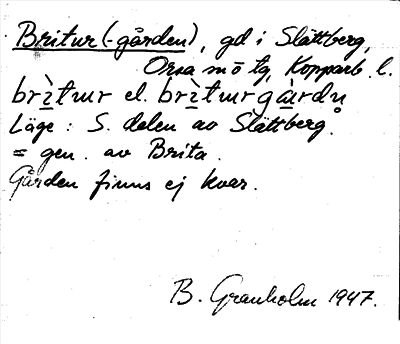 Britur (-gården), gd i Slättberg,
Orsa sn ö tg, Kopparb l.
brìtur el. brìturgàrdn
Läge: S. delen av Slättberg.
= gen. av Brita.
Gården finns ej kvar.
B. Granholm 1947.